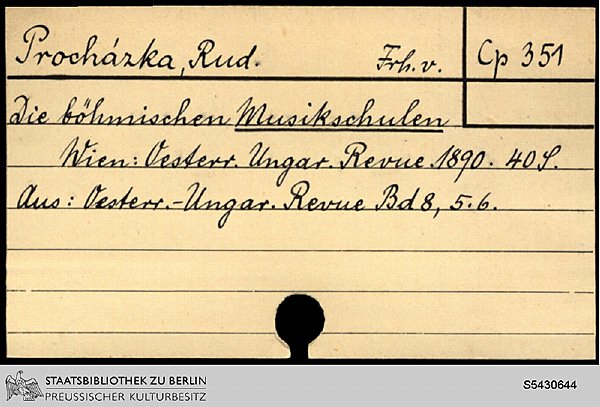 Procházka, Rud. Frh. v.
Cp 351
Die böhmischen Musikschulen
Wien: Oesterr. Ungar. Revue 1890. 40 S.
Aus: Oesterr.-Ungar. Revue Bd 8, 5.6.
STAATSBIBLIOTHEK ZU BERLIN
PREUSSISCHER KULTURBESITZ
S5430644